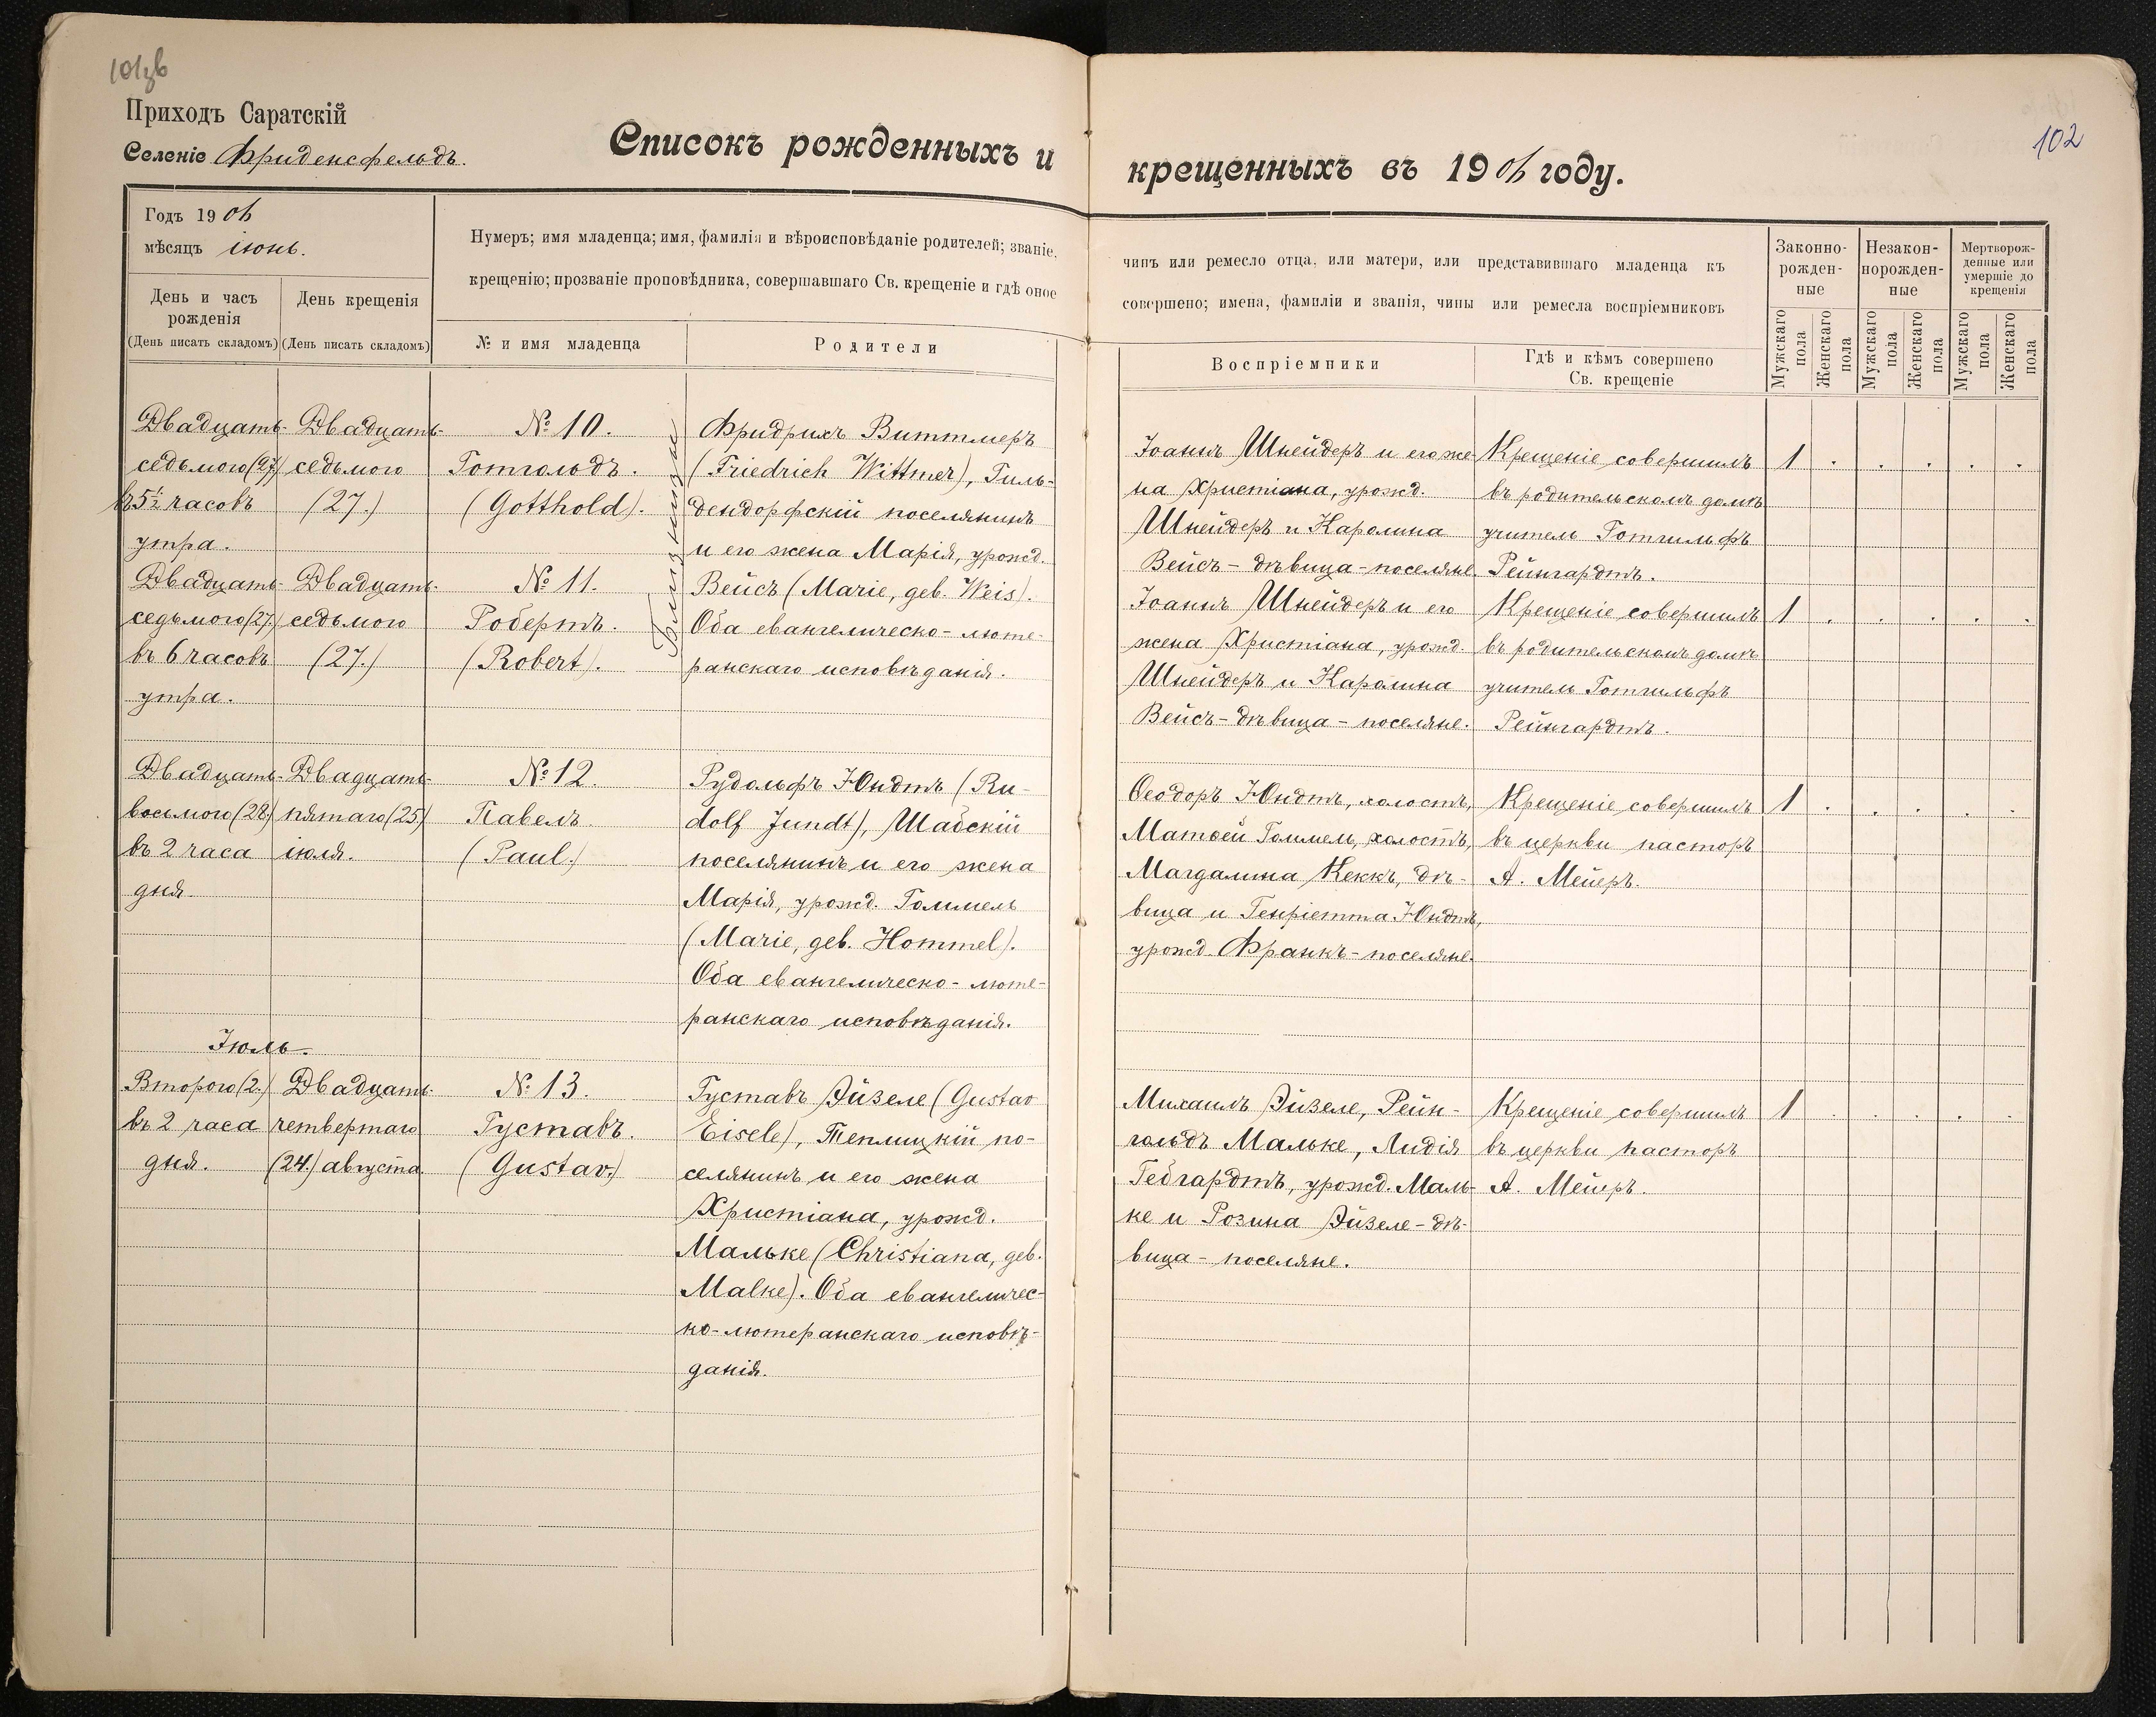 Приходъ Саратскій
Селеніе Фриденсфельдъ.
Списокъ рожденныхъ и крещенныхъ въ 1906 году.
102
Годъ 1906
мѣсяцъ іюнь.
День и часъ рожденія
(День писать складомъ)
День крещенія
(День писать складомъ)
Нумеръ; имя младенца; имя, фамилія и вѣроисповѣданіе родителей; званіе,
чинъ или ремесло отца, или матери, или представившаго младенца къ
крещенію; прозваніе проповѣдника, совершавшаго Св. крещеніе и гдѣ оное
совершено; имена, фамиліи и званія, чины или ремесла воспріемниковъ
№ и имя младенца
Родители
Воспріемники
Гдѣ и кѣмъ совершено
Св. крещеніе
Законно-
рожден-
ные
Незакон-
норожден-
ные
Мертворож-
денные или
умершіе до
крещенія
Мужскаго пола
Женскаго пола
Мужскаго пола
Женскаго пола
Мужскаго пола
Женскаго пола
Двадцать-
седьмого (27.)
въ 5½ часовъ
утра.
Двадцать-
седьмого
(27.)
№ 10.
Готгольдъ.
(Gotthold).
Близнецы
Фридрихъ Виттмеръ
(Friedrich Wittmer), Гиль-
дендорфскій поселянинъ
и его жена Марія, урожд.
Вейсъ (Marie, geb. Weis).
Оба евангелическо-люте-
ранскаго исповѣданія.
Іоаннъ Шнейдеръ и его же-
на Христіана, урожд.
Шнейдеръ и Каролина
Вейсъ - дѣвица - поселяне.
Крещеніе совершилъ
въ родительскомъ домѣ
учитель Готгильфъ
Рейнгардтъ.
1
Двадцать-
седьмого (27.)
въ 6 часовъ
утра.
Двадцать-
седьмого
(27.)
№ 11.
Робертъ.
(Robert).
Іоаннъ Шнейдеръ и его
жена Христіана, урожд.
Шнейдеръ и Каролина
Вейсъ - дѣвица - поселяне.
Крещеніе совершилъ
въ родительскомъ домѣ
учитель Готгильфъ
Рейнгардтъ.
1
Двадцать-
восьмого (28.)
въ 2 часа
дня.
Двадцать-
пятаго (25.)
іюля.
№ 12.
Павелъ.
(Paul.)
Рудольфъ Юндтъ (Ru-
dolf Jundt), Шабскій
поселянинъ и его жена
Марія, урожд. Гоммель
(Marie, geb. Hommel).
Оба евангелическо-люте-
ранскаго исповѣданія.
Ѳеодоръ Юндтъ, холостъ,
Матѳей Гоммель, холостъ,
Магдалина Кеккъ, дѣ-
вица и Генріетта Юндтъ,
урожд. Франкъ - поселяне.
Крещеніе совершилъ
въ церкви пасторъ
А. Мейеръ.
1
Іюль.
Второго (2.)
въ 2 часа
дня.
Двадцать-
четвертаго
(24.) августа.
№ 13.
Густавъ.
(Gustav.)
Густавъ Эйзеле (Gustav
Eisele), Теплицкій по-
селянинъ и его жена
Христіана, урожд.
Мальке (Christiana, geb.
Malke). Оба евангеличес-
ко-лютеранскаго исповѣ-
данія.
Михаилъ Эйзеле, Рейн-
гольдъ Мальке, Лидія
Гебгардтъ, урожд. Маль-
ке и Розина Эйзеле - дѣ-
вица - поселяне.
Крещеніе совершилъ
въ церкви пасторъ
А. Мейеръ.
1